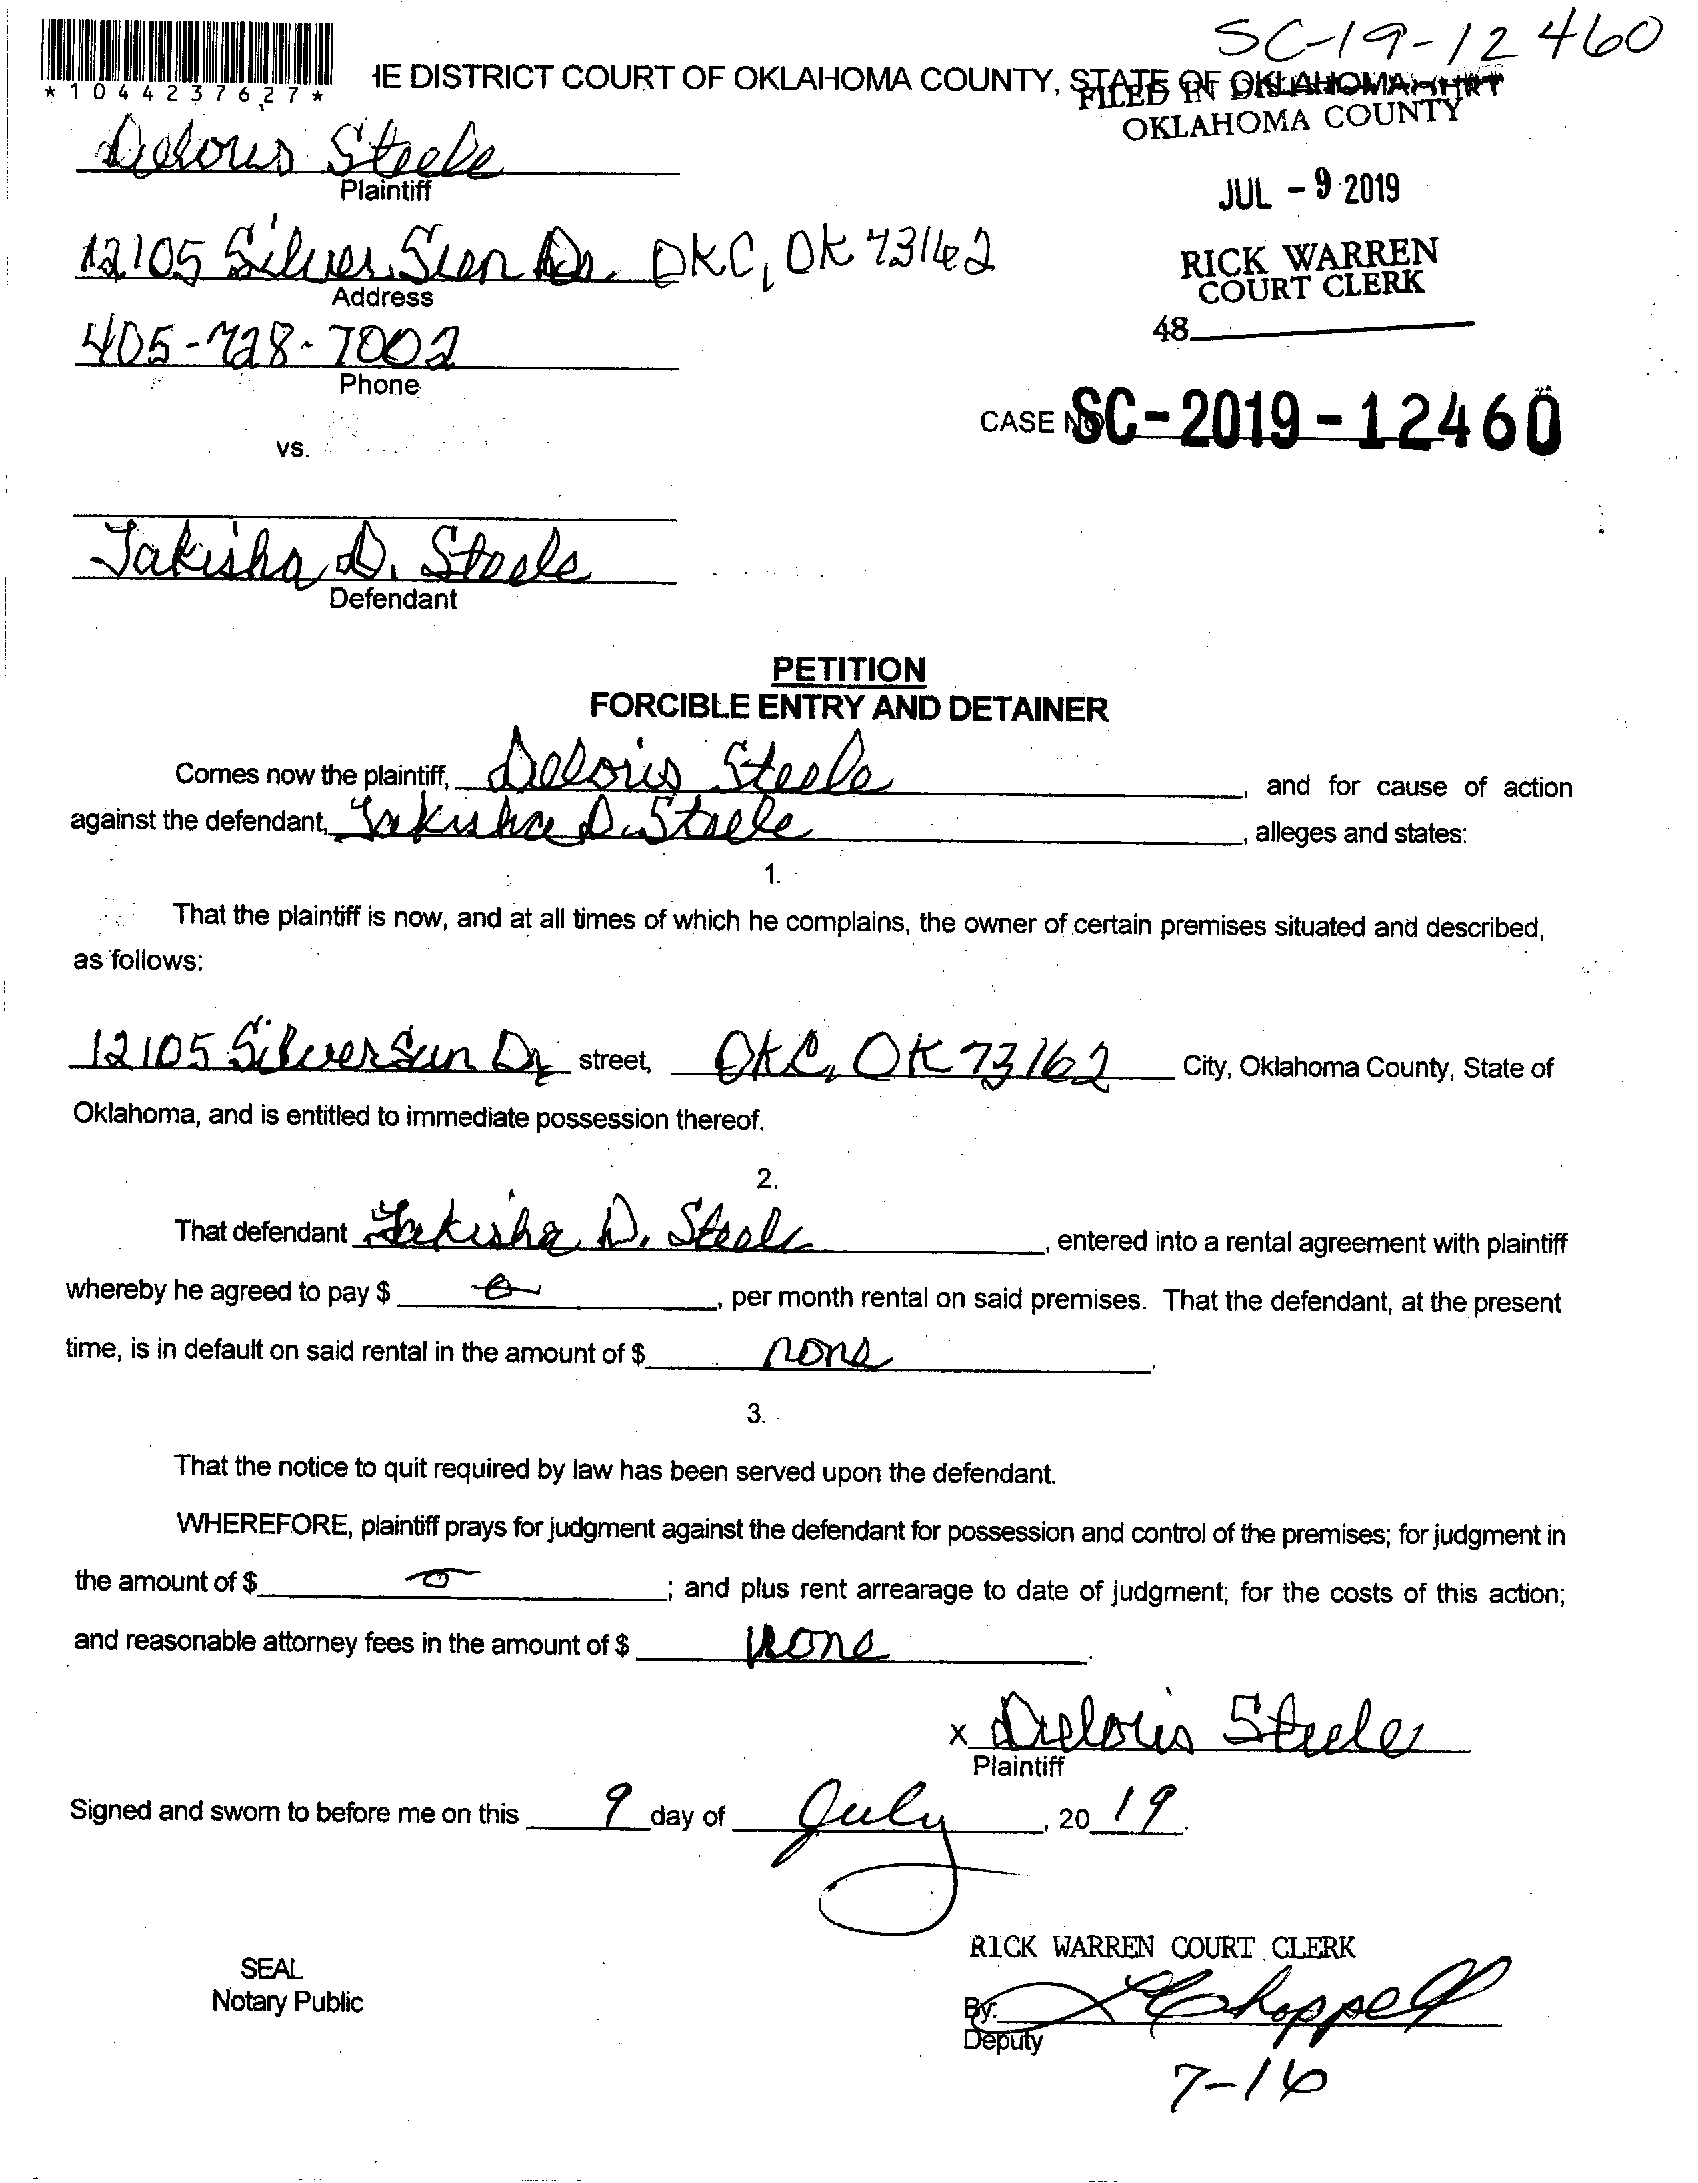 SC-19-12460
*1044237627*
IE DISTRICT COURT OF OKLAHOMA COUNTY, STATE OF OKLAHOMA
FILED IN
OKLAHOMA COUNTY
Deloris Steele
Plaintiff
JUL - 9 2019
12105 Silver Sun Dr. OKC, OK 73162
Address
RICK WARREN
COURT CLERK
405-728-7002
Phone
48
CASE NO SC-2019-12460
vs.
Takisha D. Steele
Defendant
PETITION
FORCIBLE ENTRY AND DETAINER
Comes now the plaintiff, Deloris Steele, and for cause of action
against the defendant, Takisha D. Steele, alleges and states:
1.
That the plaintiff is now, and at all times of which he complains, the owner of certain premises situated and described,
as follows:
12105 Silver Sun Dr street, OKC, OK 73162 City, Oklahoma County, State of
Oklahoma, and is entitled to immediate possession thereof.
2.
That defendant Takisha D. Steele, entered into a rental agreement with plaintiff
whereby he agreed to pay $ 0, per month rental on said premises. That the defendant, at the present
time, is in default on said rental in the amount of $ none.
3.
That the notice to quit required by law has been served upon the defendant.
WHEREFORE, plaintiff prays for judgment against the defendant for possession and control of the premises; for judgment in
the amount of $ 0; and plus rent arrearage to date of judgment; for the costs of this action;
and reasonable attorney fees in the amount of $ none.
x Deloris Steele
Plaintiff
Signed and sworn to before me on this 9 day of July, 20 19.
RICK WARREN COURT CLERK
SEAL
Notary Public
By: Chappell
Deputy
7-16